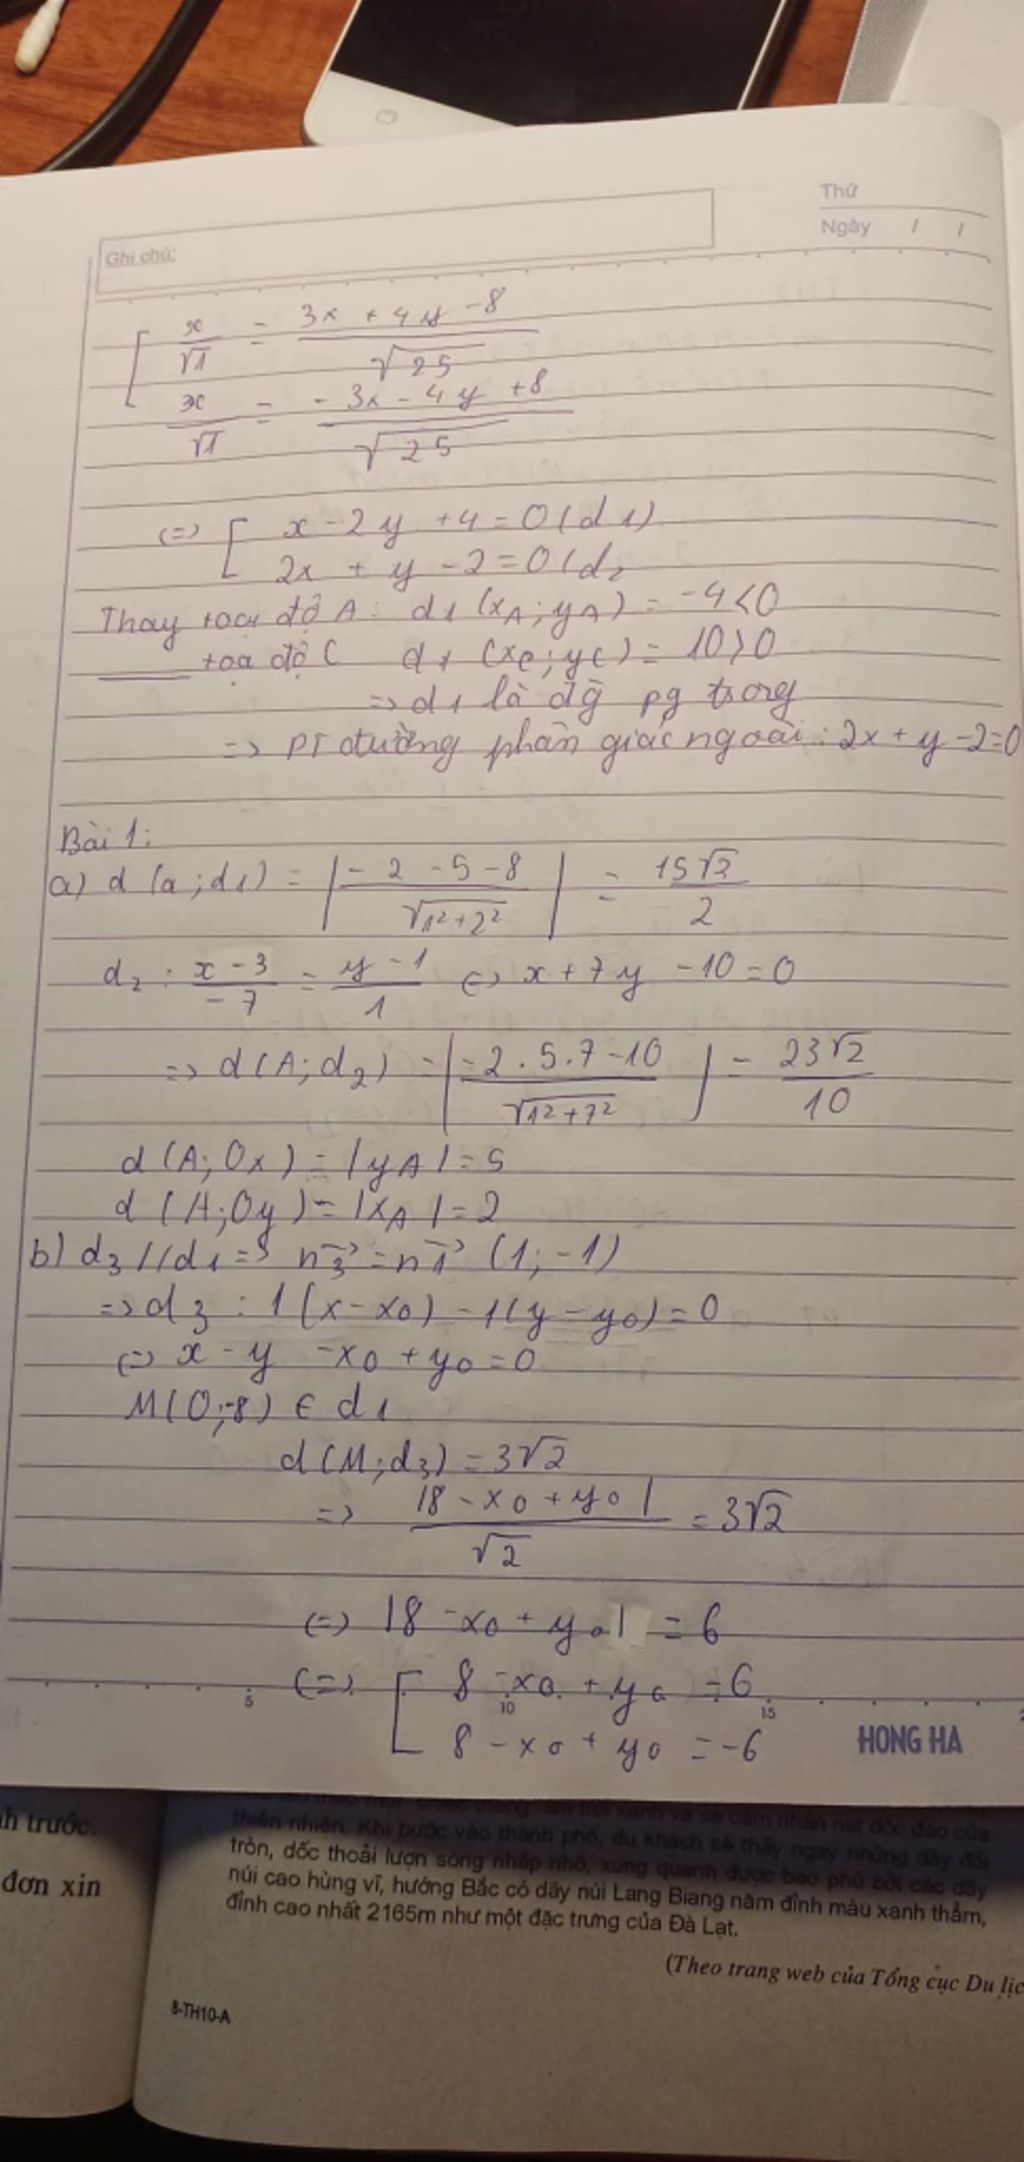 Thứ
Ngày / /
Ghi chú:
x/√1 = (3x + 4y - 8)/√25
x/√1 = (-3x - 4y + 8)/√25
(=) [ x - 2y + 4 = 0 (d1)
2x + y - 2 = 0 (d2
Thay toạ độ A: d1 (xA; yA) = -4 < 0
toạ độ C d1 (xC; yC) = 10 > 0
=> d1 là đg pg trong
=> PT đường phân giác ngoài: 2x + y - 2 = 0
Bài 1:
a) d (a; d1) = |(-2 - 5 - 8)/√(1²+2²)| = 15√2/2
d2 : (x - 3)/-7 = (y - 1)/1 (=) x + 7y - 10 = 0
=> d(A; d2) = |(-2 . 5.7 - 10)/√(1²+7²)| = 23√2/10
d (A; Ox) = |yA| = 5
d (A; Oy) = |xA| = 2
b) d3 // d1 => n3→ = n1→ (1; -1)
=> d3 : 1(x - x0) - 1(y - y0) = 0
(=) x - y - x0 + y0 = 0
M(0;-8) ∈ d1
d(M; d3) = 3√2
=> |8 - x0 + y0|/√2 = 3√2
(=) |8 - x0 + y0| = 6
(=) [ 8 - x0 + y0 = 6
8 - x0 + y0 = -6
5 10 15
HONG HA
h trước.
đơn xin
thiên nhiên. Khi bước vào thành phố, du khách sẽ thấy ngay những dãy đồi
tròn, dốc thoải lượn sóng nhấp nhô, xung quanh được bao phủ bởi các dãy
núi cao hùng vĩ, hướng Bắc có dãy núi Lang Biang năm đỉnh màu xanh thẳm,
đỉnh cao nhất 2165m như một đặc trưng của Đà Lạt.
(Theo trang web của Tổng cục Du lịc
8-TH10-A